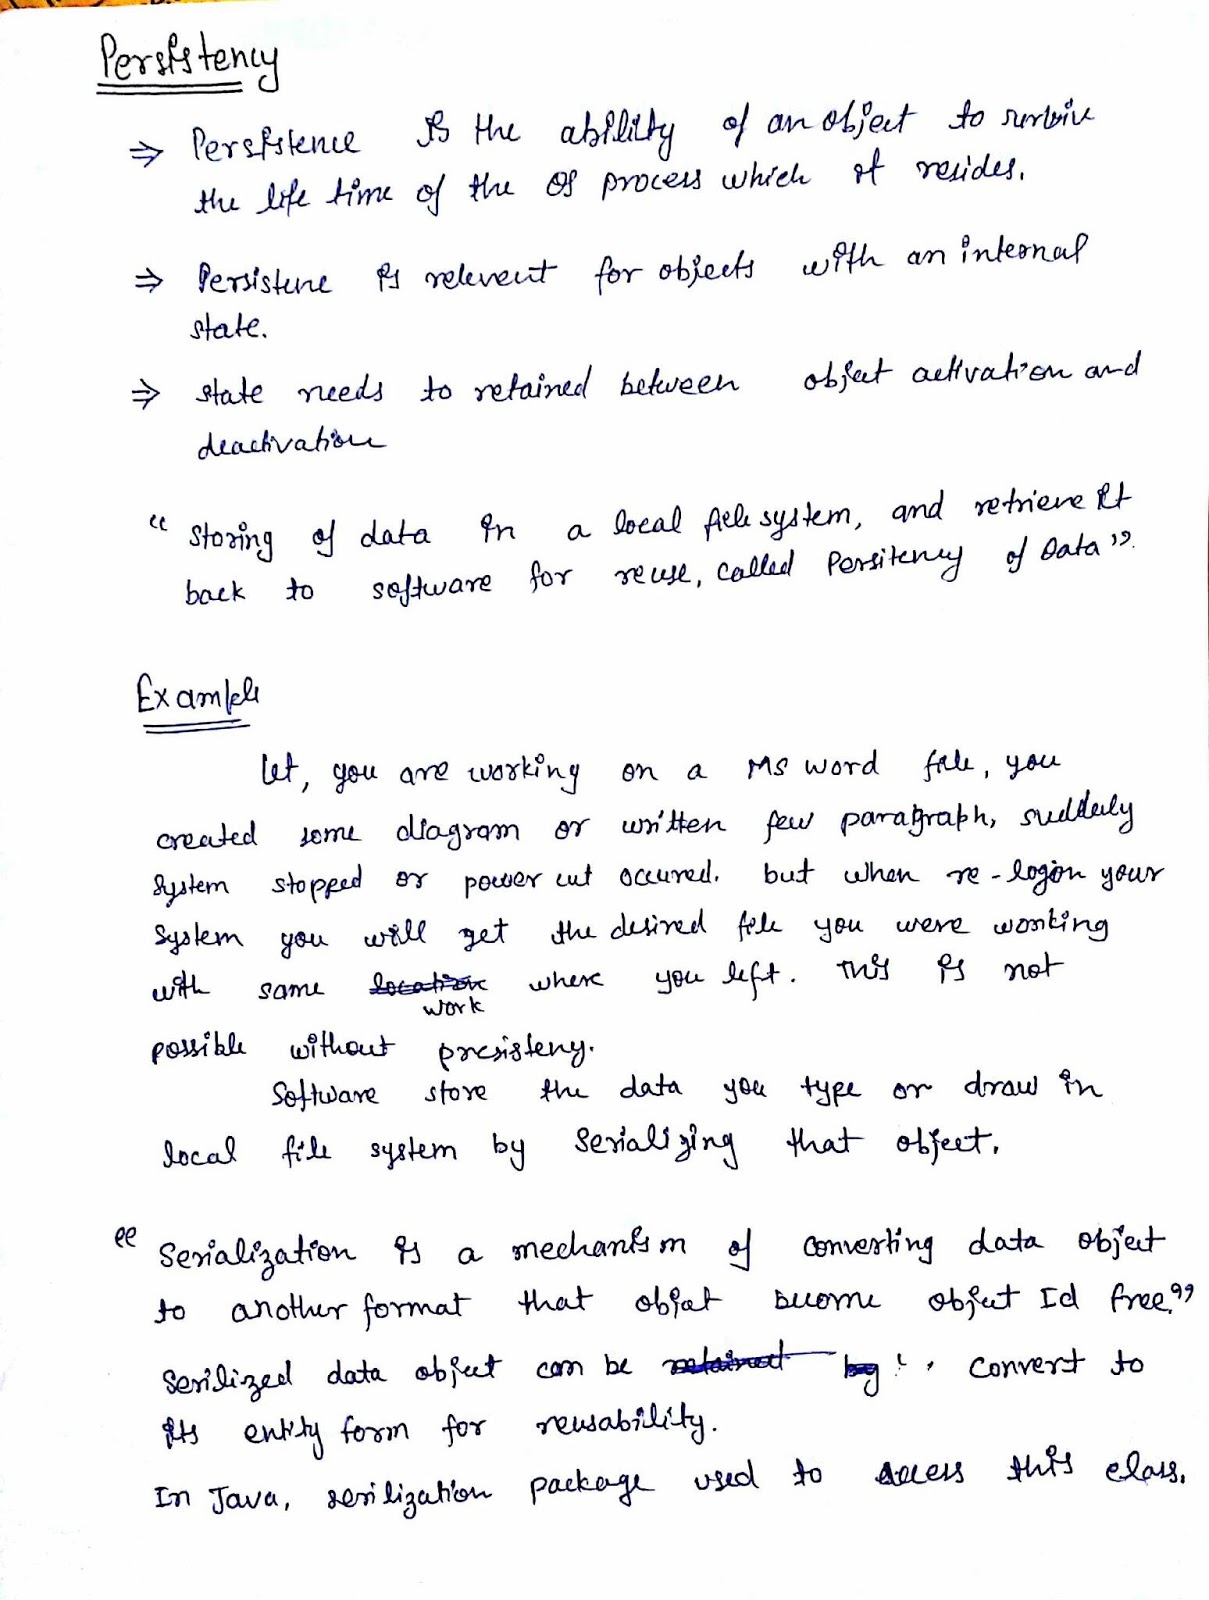 Persistency
⇒ Persistence is the ability of an object to survive
the life time of the OS process which it resides.
⇒ Persistene is relevent for objects with an internal
state.
⇒ state needs to retained between object activation and
deactivation
“ Storing of data in a local file system, and retrieve it
back to software for reuse, called Persitency of Data”.
Example
let, you are working on a MS word file, you
created some diagram or written few paragraph, suddenly
system stopped or power cut occured. but when re-login your
system you will get the desired file you were working
with same location where you left. This is not
work
possible without presisteny.
Software store the data you type or draw in
local file system by serializing that object.
“ Serialization is a mechanism of converting data object
to another format that object become object Id free.”
Serilized data object can be retained by convert to
its entity form for reusability.
In Java, serilization package used to access this class.